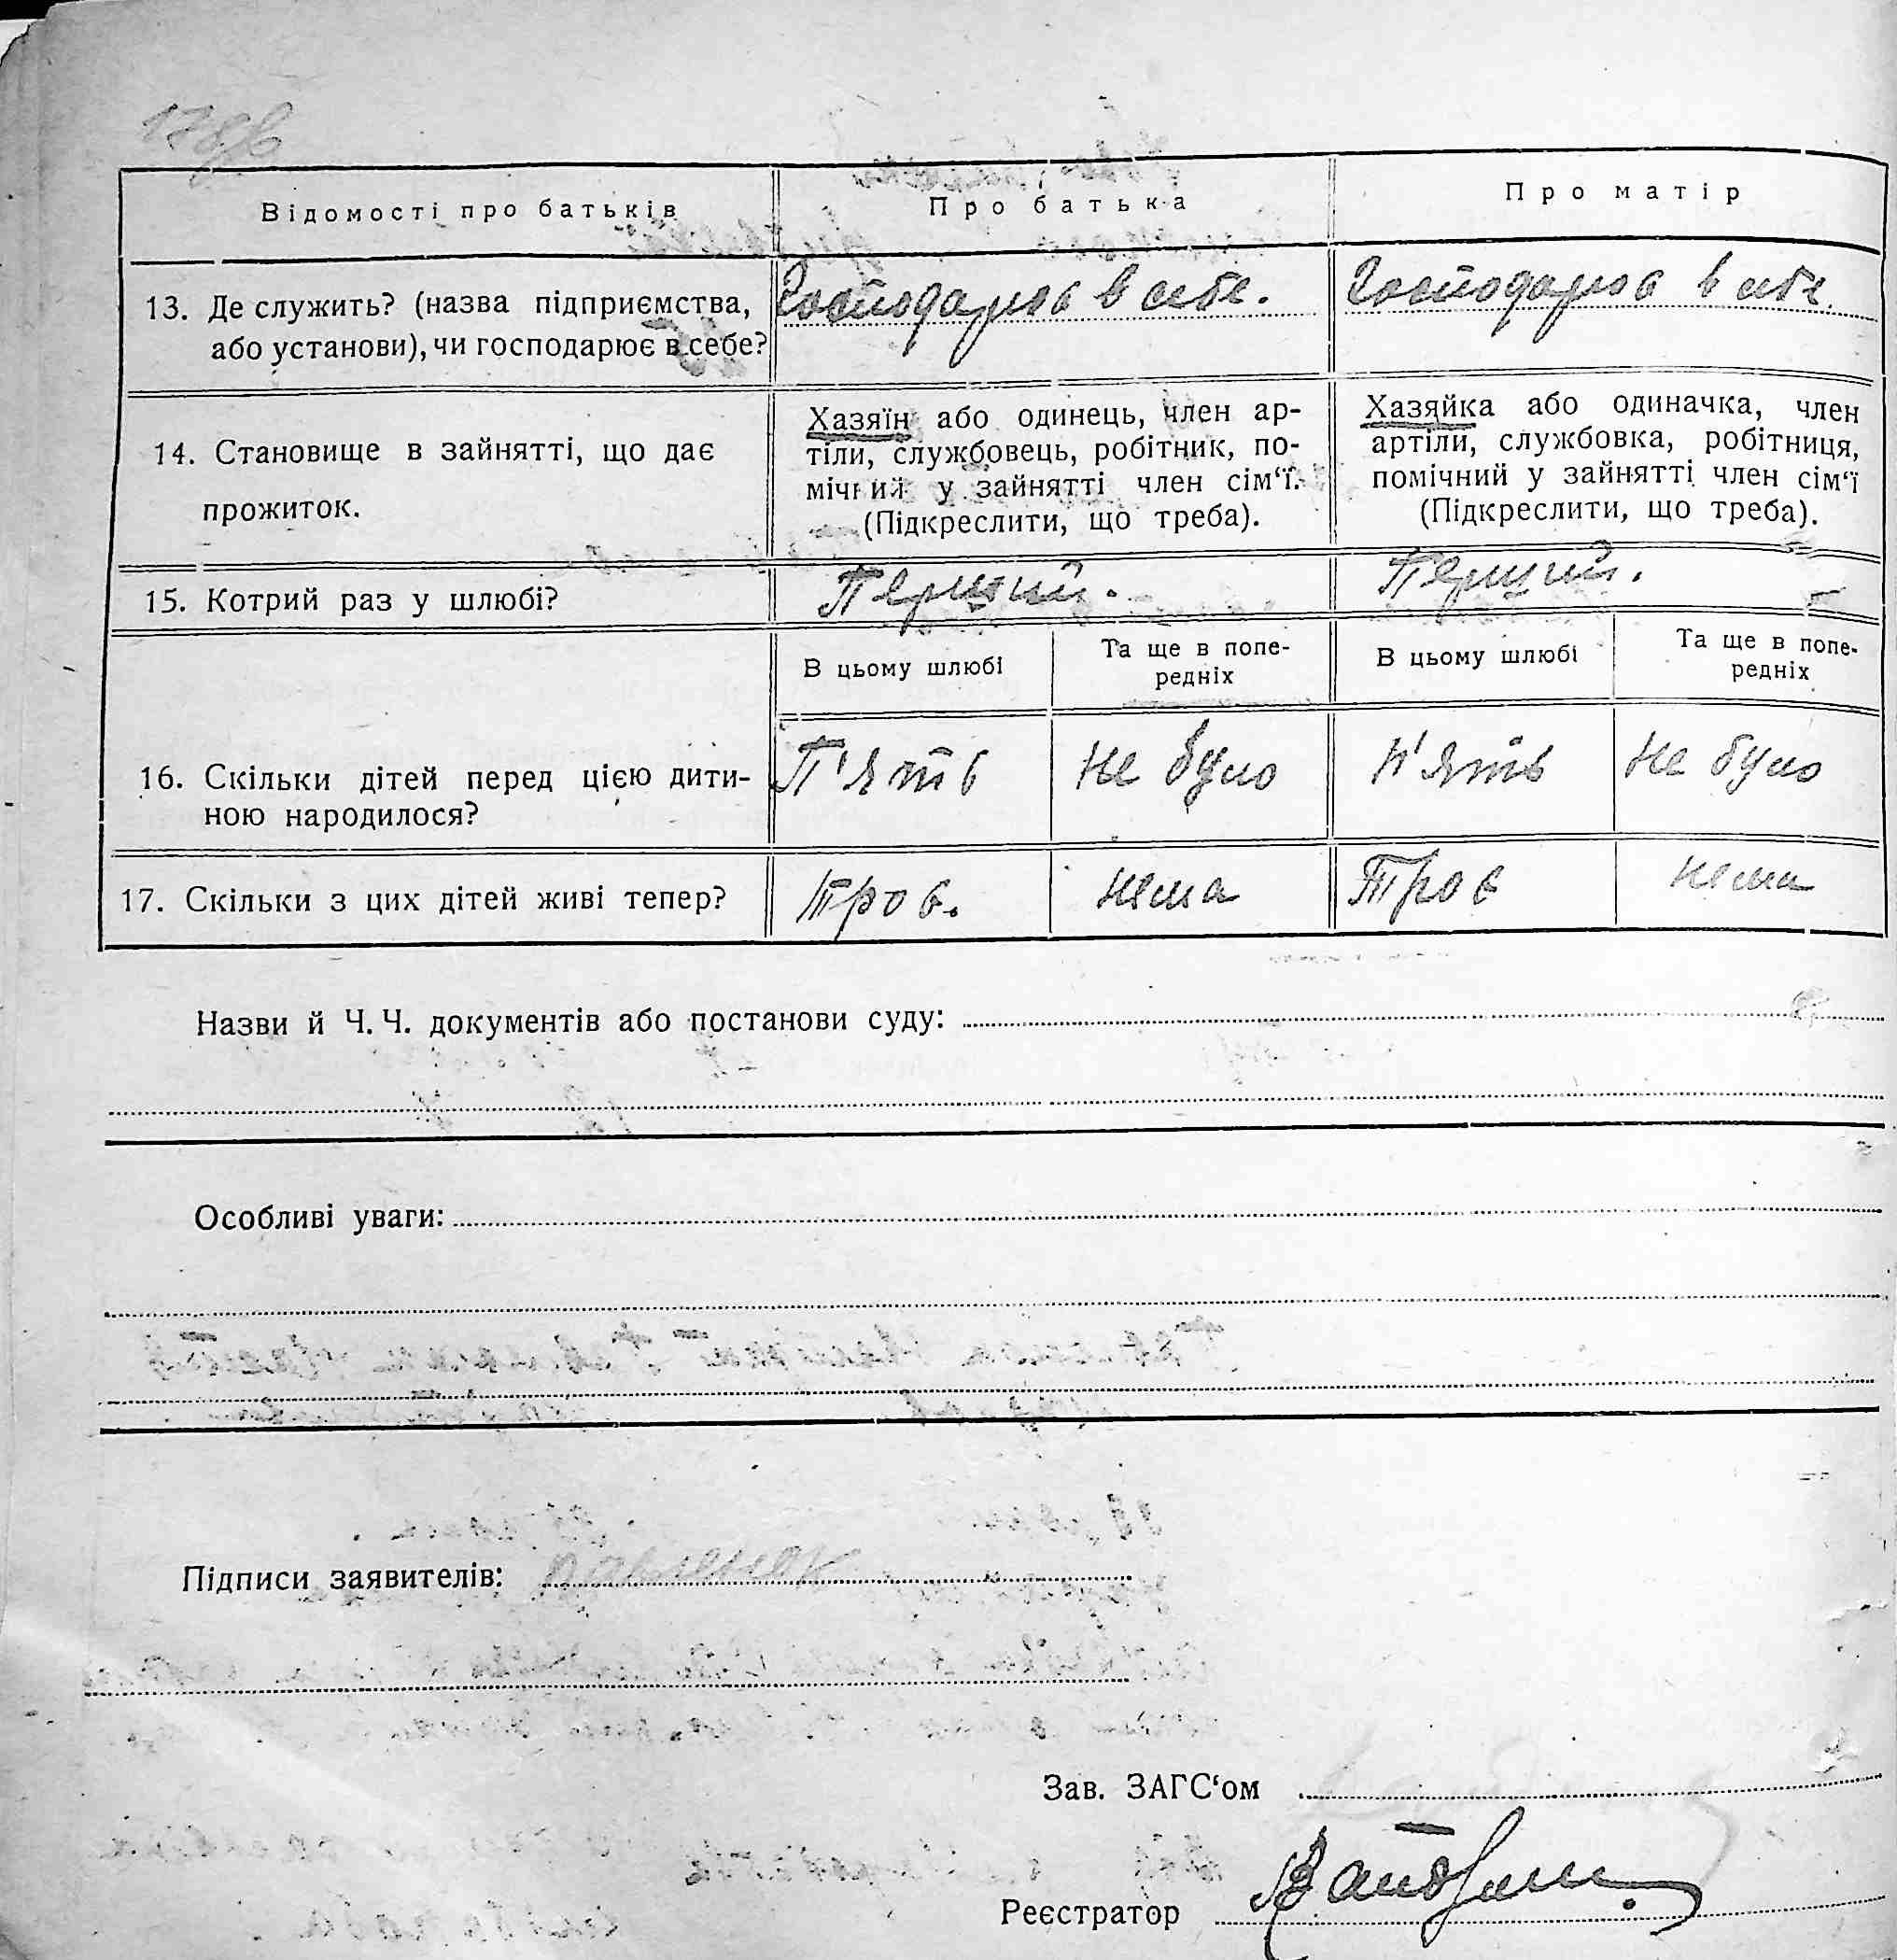 Відомості про батьків
Про батька
Про матір
13. Де служить? (назва підприємства,
або установи), чи господарює в себе?
Господарює в себе.
Господарює в себе.
14. Становище в зайнятті, що дає
прожиток.
Хазяїн або одинець, член ар-
тіли, службовець, робітник, по-
мічний у зайнятті член сім‘ї.
(Підкреслити, що треба).
Хазяйка або одиначка, член
артіли, службовка, робітниця,
помічний у зайнятті член сім‘ї
(Підкреслити, що треба).
15. Котрий раз у шлюбі?
Перший.
Перший.
В цьому шлюбі
Та ще в попе-
редніх
В цьому шлюбі
Та ще в попе-
редніх
16. Скільки дітей перед цією дити-
ною народилося?
П'ять
не було
п'ять
не було
17. Скільки з цих дітей живі тепер?
троє.
нема
Троє
нема
Назви й Ч. Ч. документів або постанови суду:
Особливі уваги:
Підписи заявителів:
Зав. ЗАГС‘ом
Реєстратор